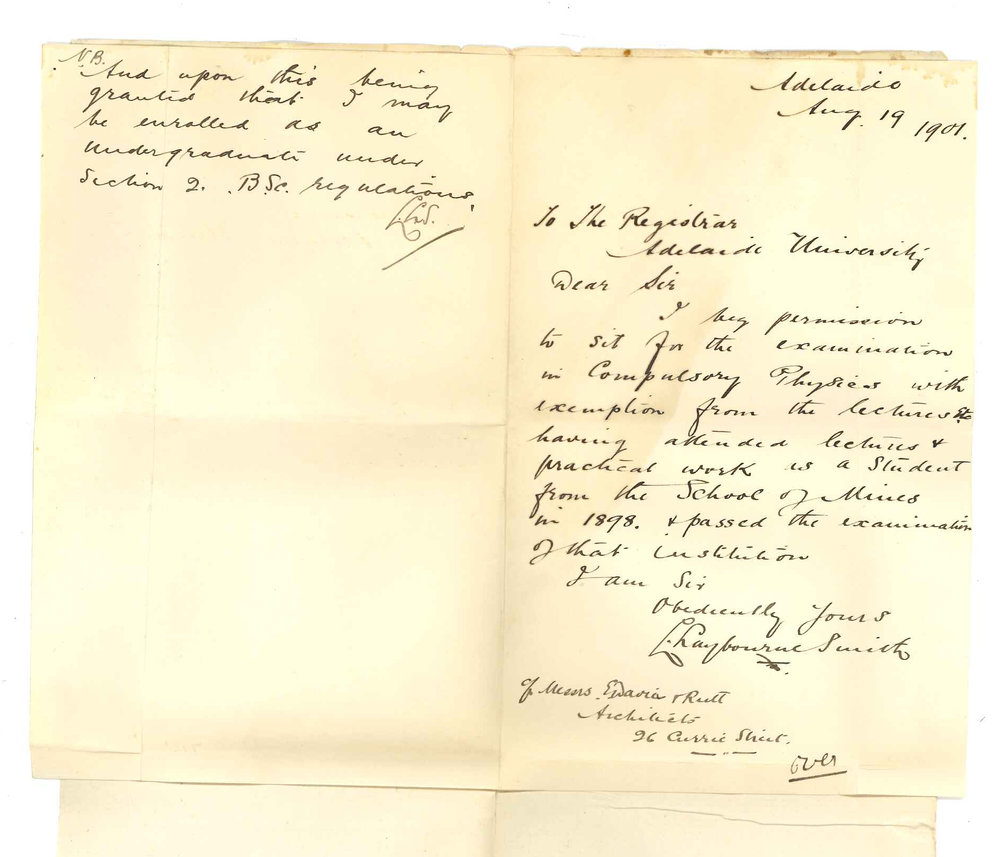 Adelaide
Aug. 19 1901.
To The Registrar
Adelaide University
Dear Sir
I beg permission
to sit for the examination
in Compulsory Physics with
exemption from the lectures etc
having attended lectures &
practical work as a Student
from the School of Mines
in 1898. & passed the examination
of that institution
I am Sir
Obediently Yours
L. Laybourne Smith
of Messrs. E Davies & Rutt
Architects
26 Currie Street.
over
N.B.
And upon this being
granted that I may
be enrolled as an
undergraduate under
Section 2. B.Sc. regulations.
L.L.S.